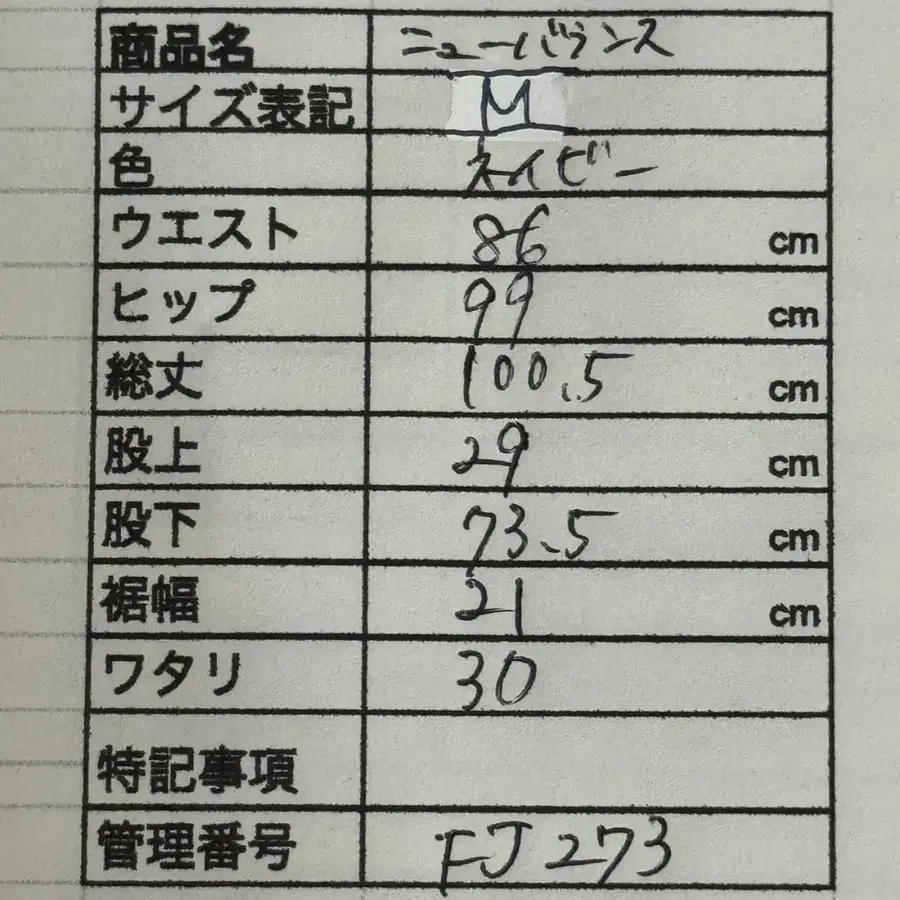 商品名 ニューバランス
サイズ表記 M
色 ネイビー
ウエスト 86 cm
ヒップ 99 cm
総丈 100.5 cm
股上 29 cm
股下 73.5 cm
裾幅 21 cm
ワタリ 30
特記事項
管理番号 FJ273